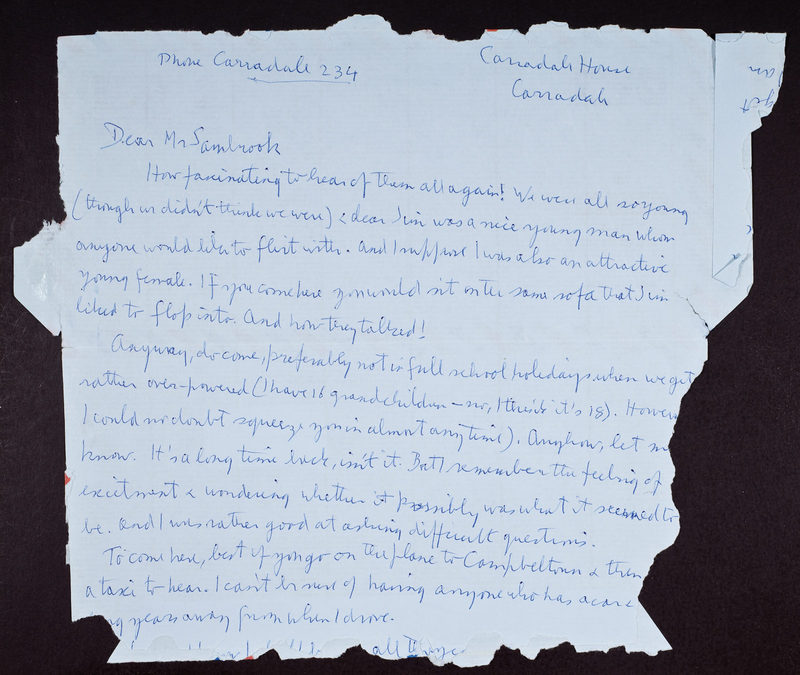 Phone Carradale 234
Carradale House
Carradale
Dear Mr Sambrook
How fascinating to hear of them all again! We were all so young
(though we didn't think we were) & dear Jim was a nice young man whom
anyone would like to flirt with. And I suppose I was also an attractive
young female. If you come here you would sit on the same sofa that Jim
liked to flop into. And how they talked!
Anyway, do come, preferably not in full school holidays when we get
rather over-powered (I have 16 grandchildren - no, I think it's 18). However
I could no doubt squeeze you in almost any time). Anyhow, let me
know. It's a long time back, isn't it. But I remember the feeling of
excitment & wondering whether it possibly was what it seemed to
be. And I was rather good at asking difficult questions.
To come here, best if you go on the plane to Campbeltown & then
a taxi to hear. I can't be sure of having anyone who has a car &
years away from when I drove.
all
an
get